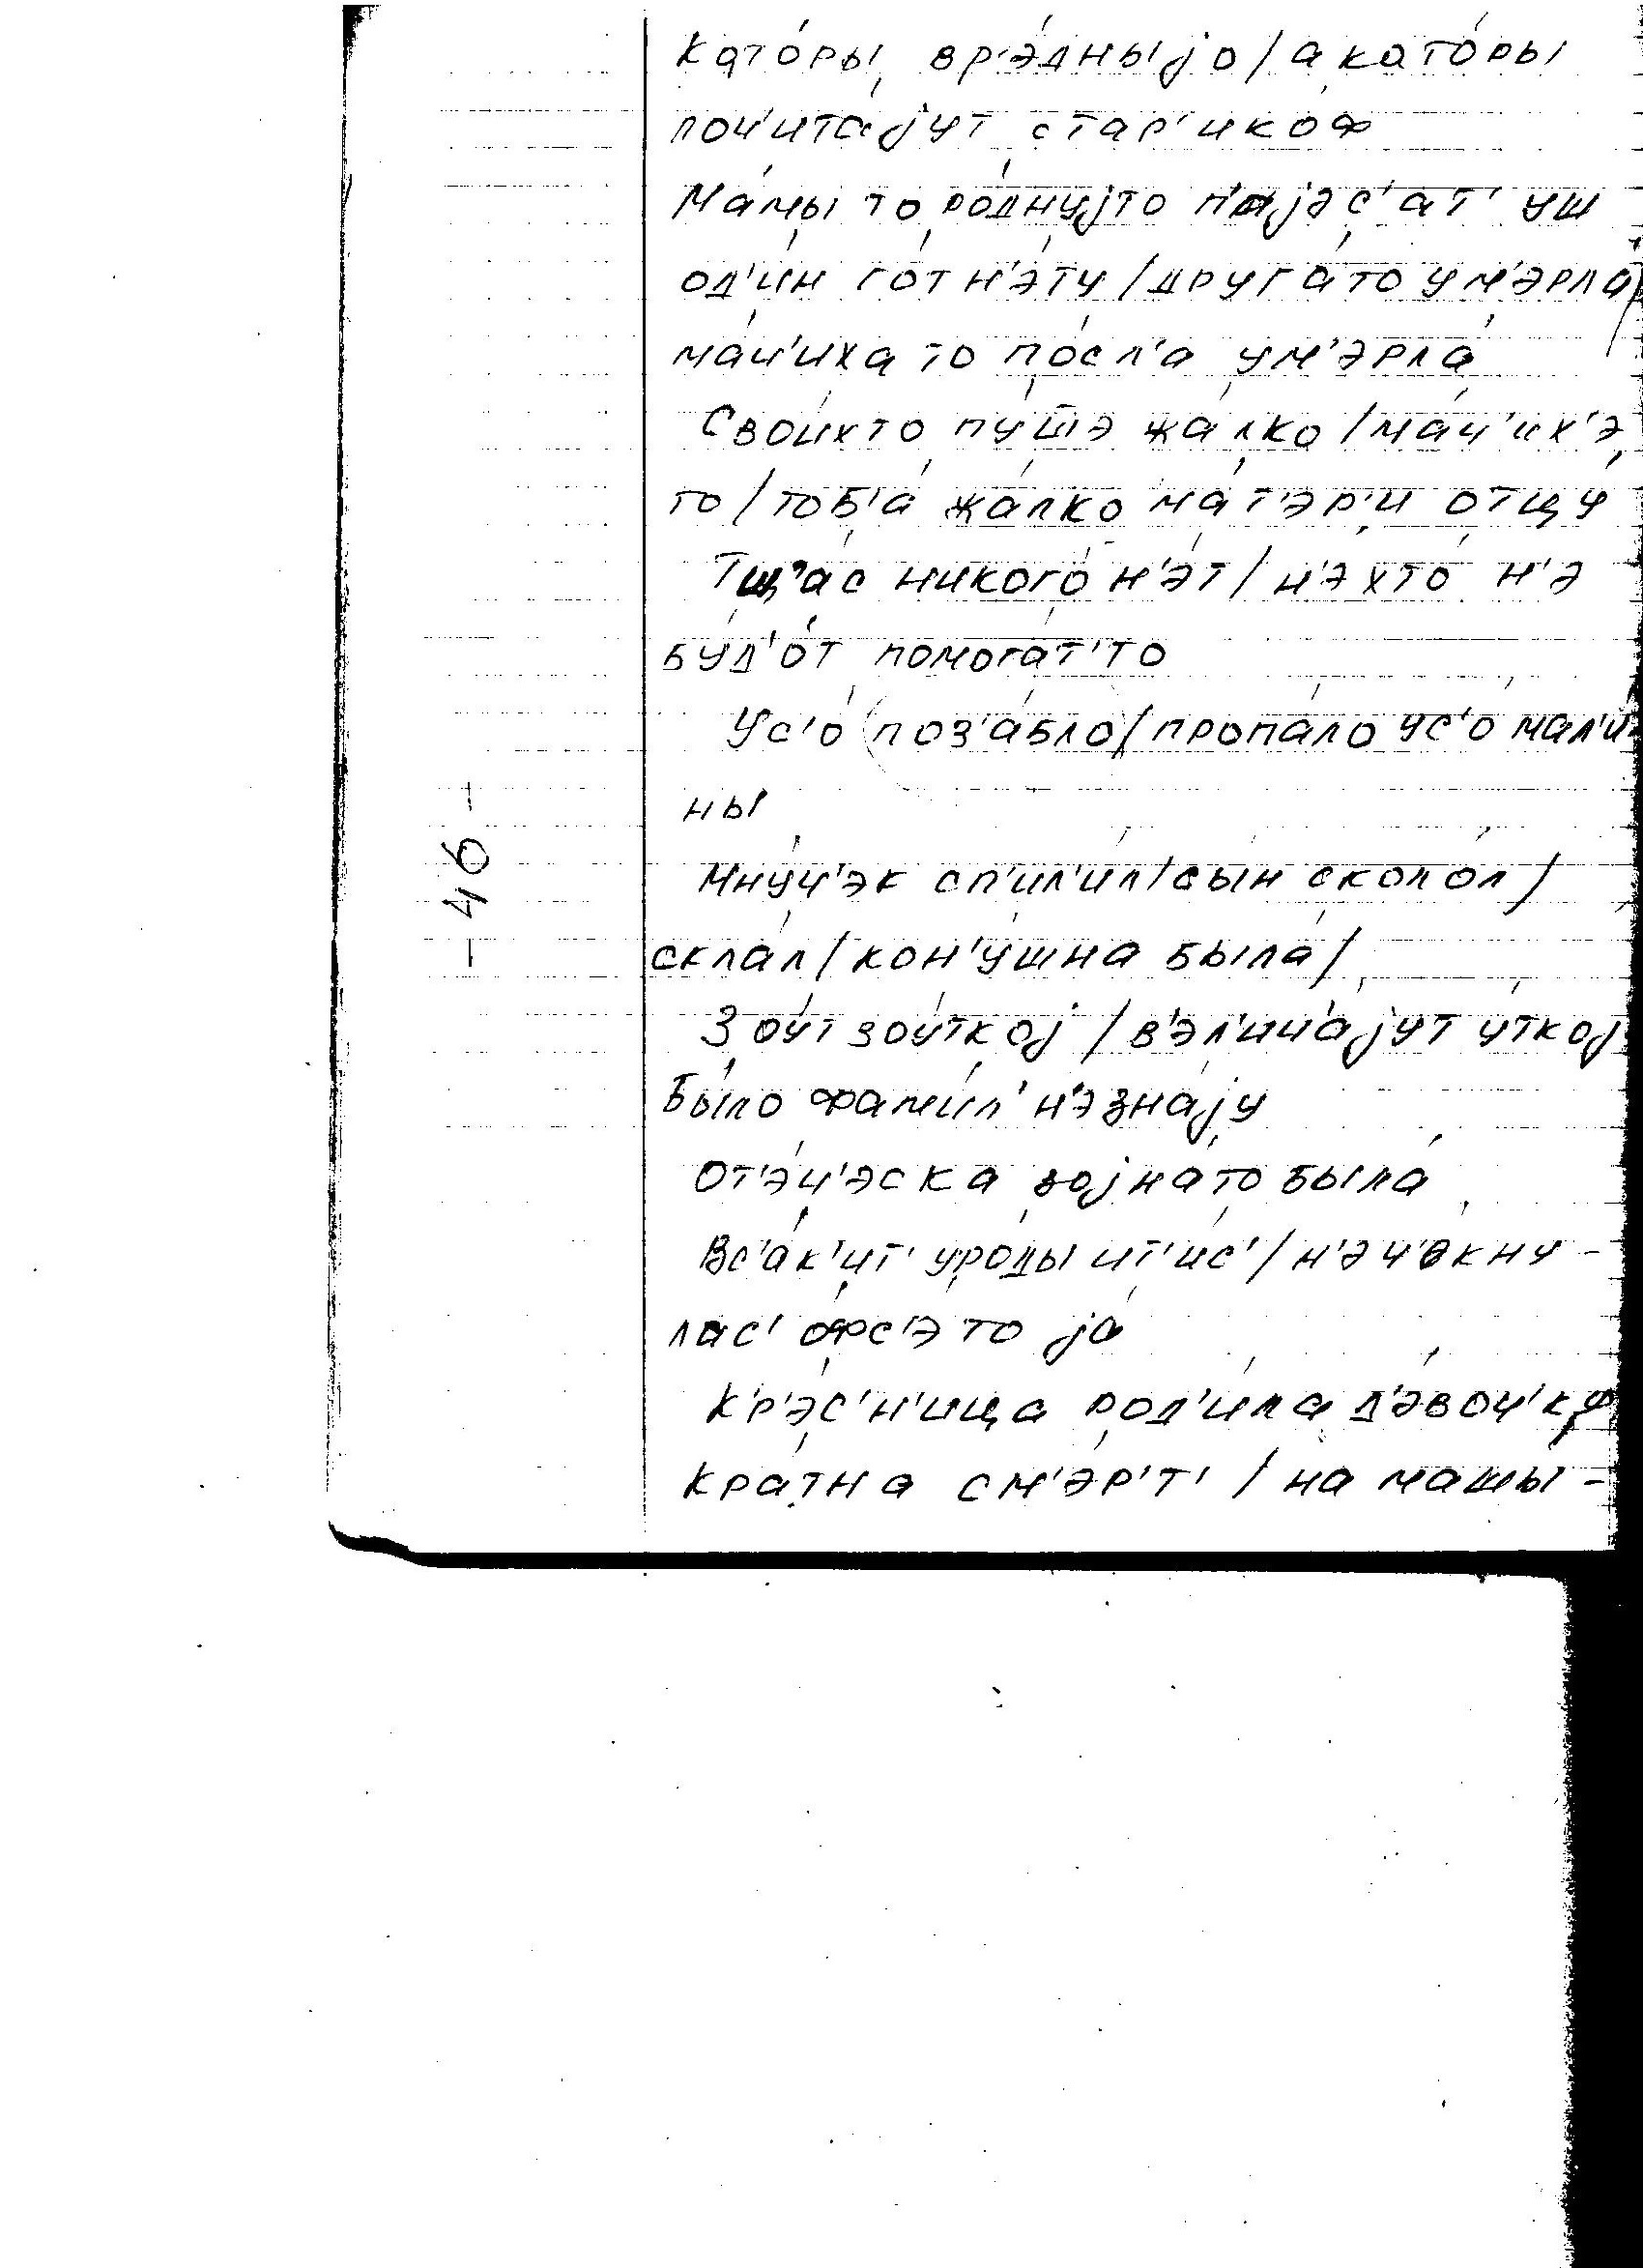 като́ры вр'э́дныjо / а като́ры
поч'ита́jут стар'ико́ф
Ма́мы то ро́днуjто п'иjэс'а́т' уш
од'и́н го́т н'э́ту / друга́то ум'эрла́ /
ма́ч'иха то по́сл'а ум'эрла́
Свои́хто пу́ш̄э жа́лко / ма́ч'их'э
то / тоб'а́ жа́лко ма́т'эр'и отцу́
Тщ'ас никого́ н'э́т / н'эхто́ н'э
бу́д'о́т помога́т'то
Ус'о́ поз'а́бло / пропа́ло ус'о́ мал'и́-
ны
Мну́ч'эк сп'ил'и́л / сы́н скопо́л /
скла́л / кон'у́шна была́ /
Зоу́т зоу́ткоj / в'эл'ича́jут у́ткоj
Бы́ло фами́л' н'э зна́jу
От'э́ч'эска воjна́то была́
Вс'а́к'ит' уро́ды ит'и́с' / н'эч'экну́-
лас' офс'э́то jа́
Кр'э́с'н'ица род'ила́ д'э́воч'ку
кра́тна см'э́р'т' / на машы́-
- 46 -